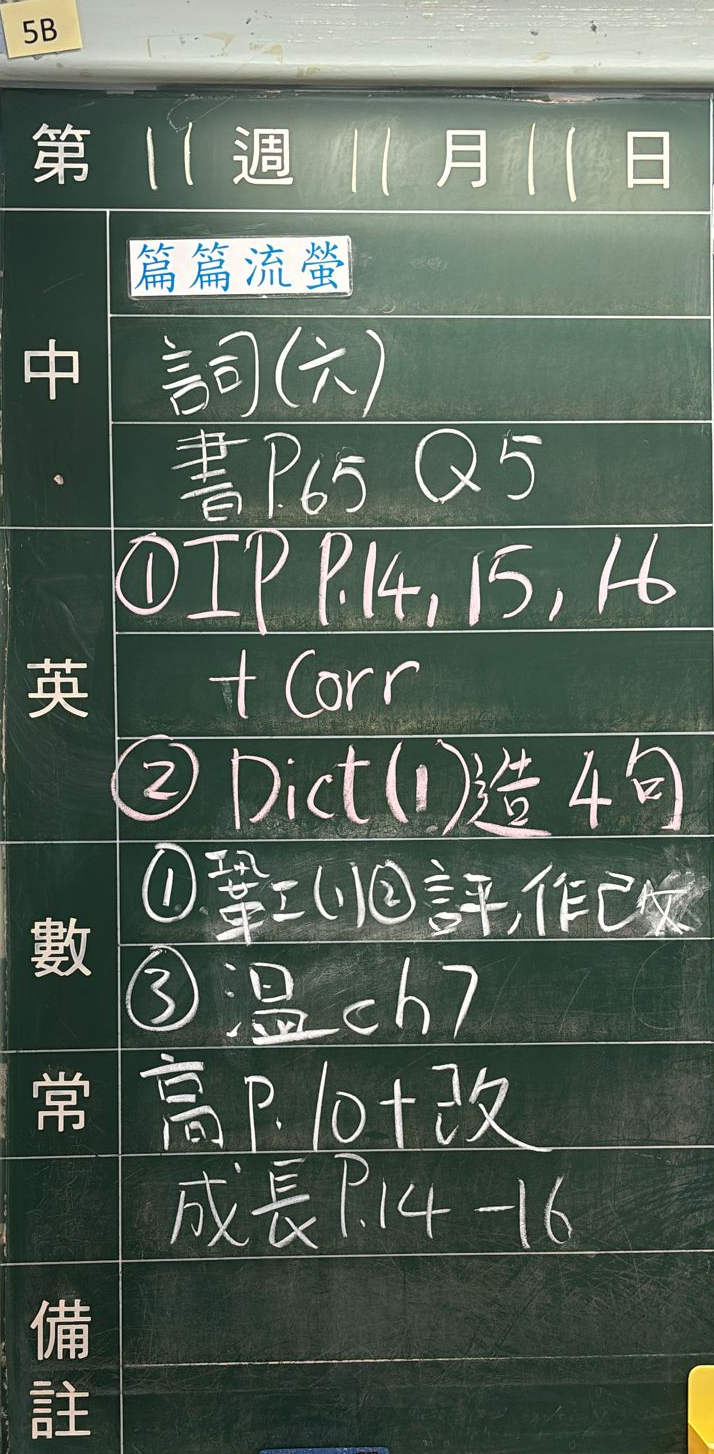 5B
第 11 週 11 月 11 日
篇篇流螢
中 詞(六)
書P.65 Q5
①IP P.14, 15, 16
英 + Corr
② Dict(1)造 4句
①鞏工(1)②評,作改
數
③溫ch7
常 高P.10+改
成長P.14-16
備註